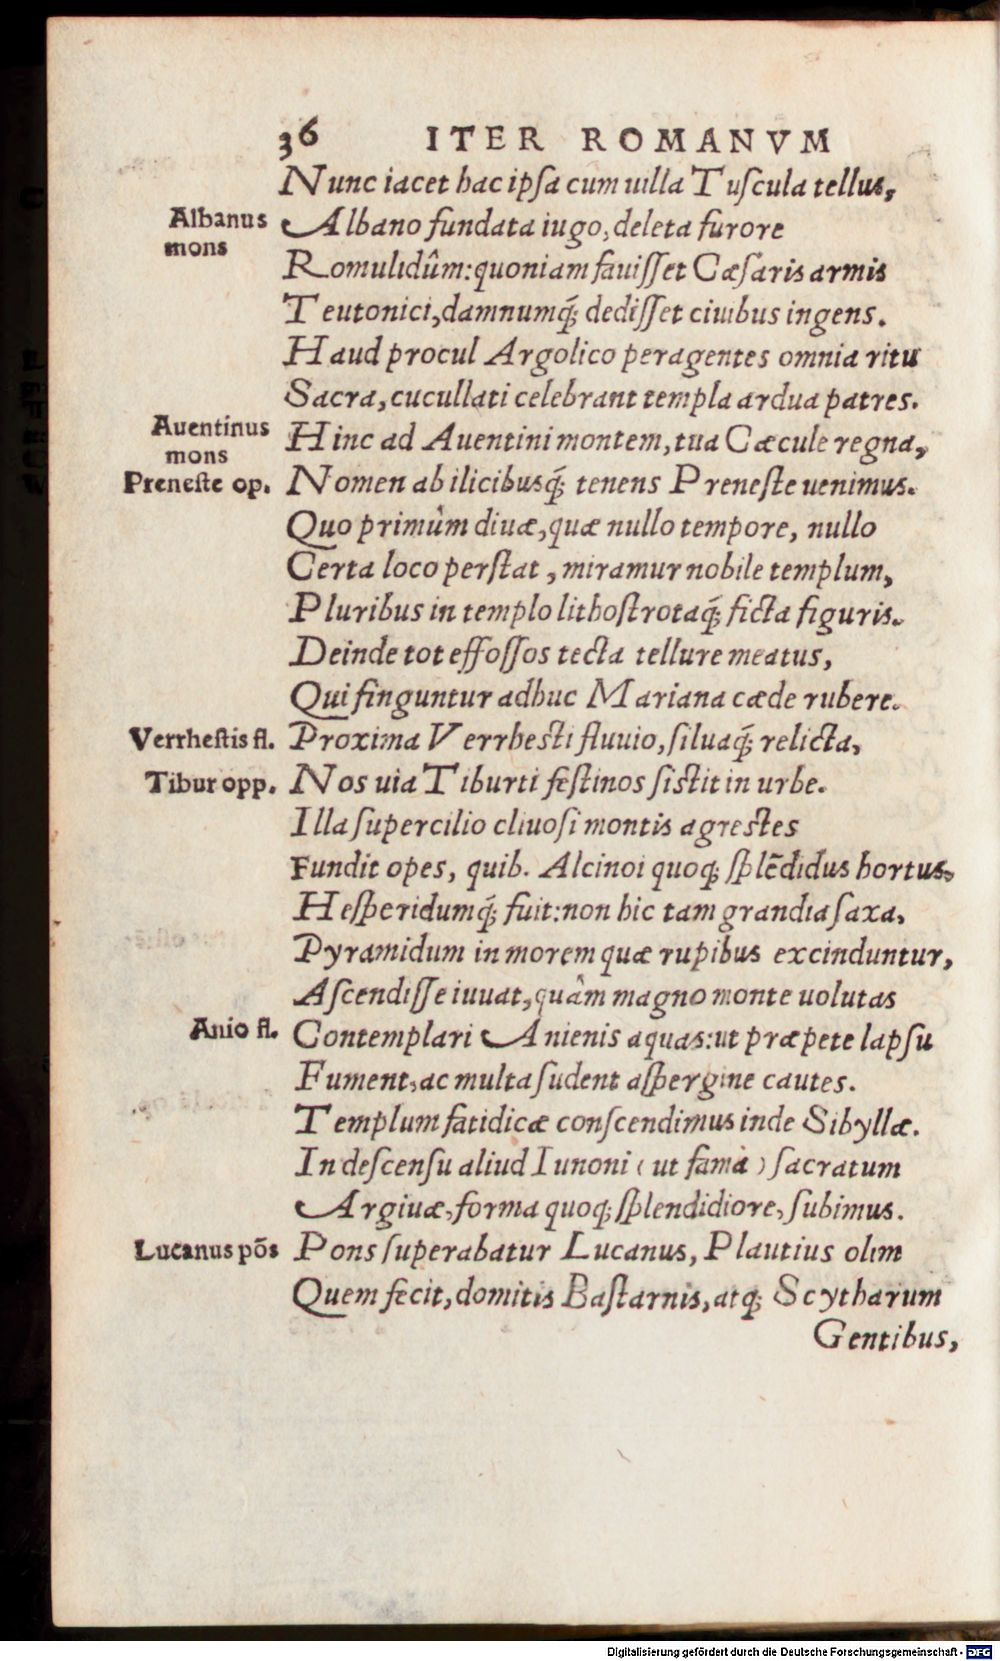 36 ITER ROMANVM
Nunc iacet hac ipſa cum uilla Tuſcula tellus,
Albanus
mons
Albano fundata iugo, deleta furore
Romulidûm: quoniam fauiſſet Cæſaris armis
Teutonici, damnumq́; dediſſet ciuibus ingens.
Haud procul Argolico peragentes omnia ritu
Sacra, cucullati celebrant templa ardua patres.
Auentinus
mons
Hinc ad Auentini montem, tua Cæcule regna,
Preneſte op.
Nomen ab ilicibusq́; tenens Preneſte uenimus.
Quo primùm diuæ, quæ nullo tempore, nullo
Certa loco perſtat, miramur nobile templum,
Pluribus in templo lithoſtrotaq́; ficta figuris.
Deinde tot effoſſos tecta tellure meatus,
Qui finguntur adhuc Mariana cæde rubere.
Verrheſtis fl.
Proxima Verrheſti fluuio, ſiluaq́; relicta,
Tibur opp.
Nos uia Tiburti feſtinos ſiſtit in urbe.
Illa ſupercilio cliuoſi montis agreſtes
Fundit opes, quib. Alcinoi quoq; ſplẽdidus hortus,
Heſperidumq́; fuit: non hic tam grandia ſaxa,
Pyramidum in morem quæ rupibus excinduntur,
Aſcendiſſe iuuat, quàm magno monte uolutas
Anio fl.
Contemplari Anienis aquas: ut præpete lapſu
Fument, ac multa ſudent aſpergine cautes.
Templum fatidicæ conſcendimus inde Sibyllæ.
In deſcenſu aliud Iunoni (ut fama) ſacratum
Argiuæ, forma quoq; ſplendidiore, ſubimus.
Lucanus põs
Pons ſuperabatur Lucanus, Plautius olim
Quem fecit, domitis Baſtarnis, atq; Scytharum
Gentibus,
Digitalisierung gefördert durch die Deutsche Forschungsgemeinschaft - DFG